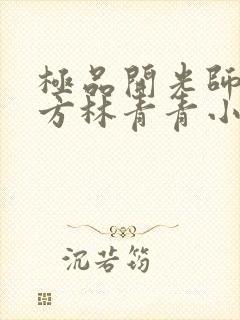 極品開光師
方林青青小
沉若筠